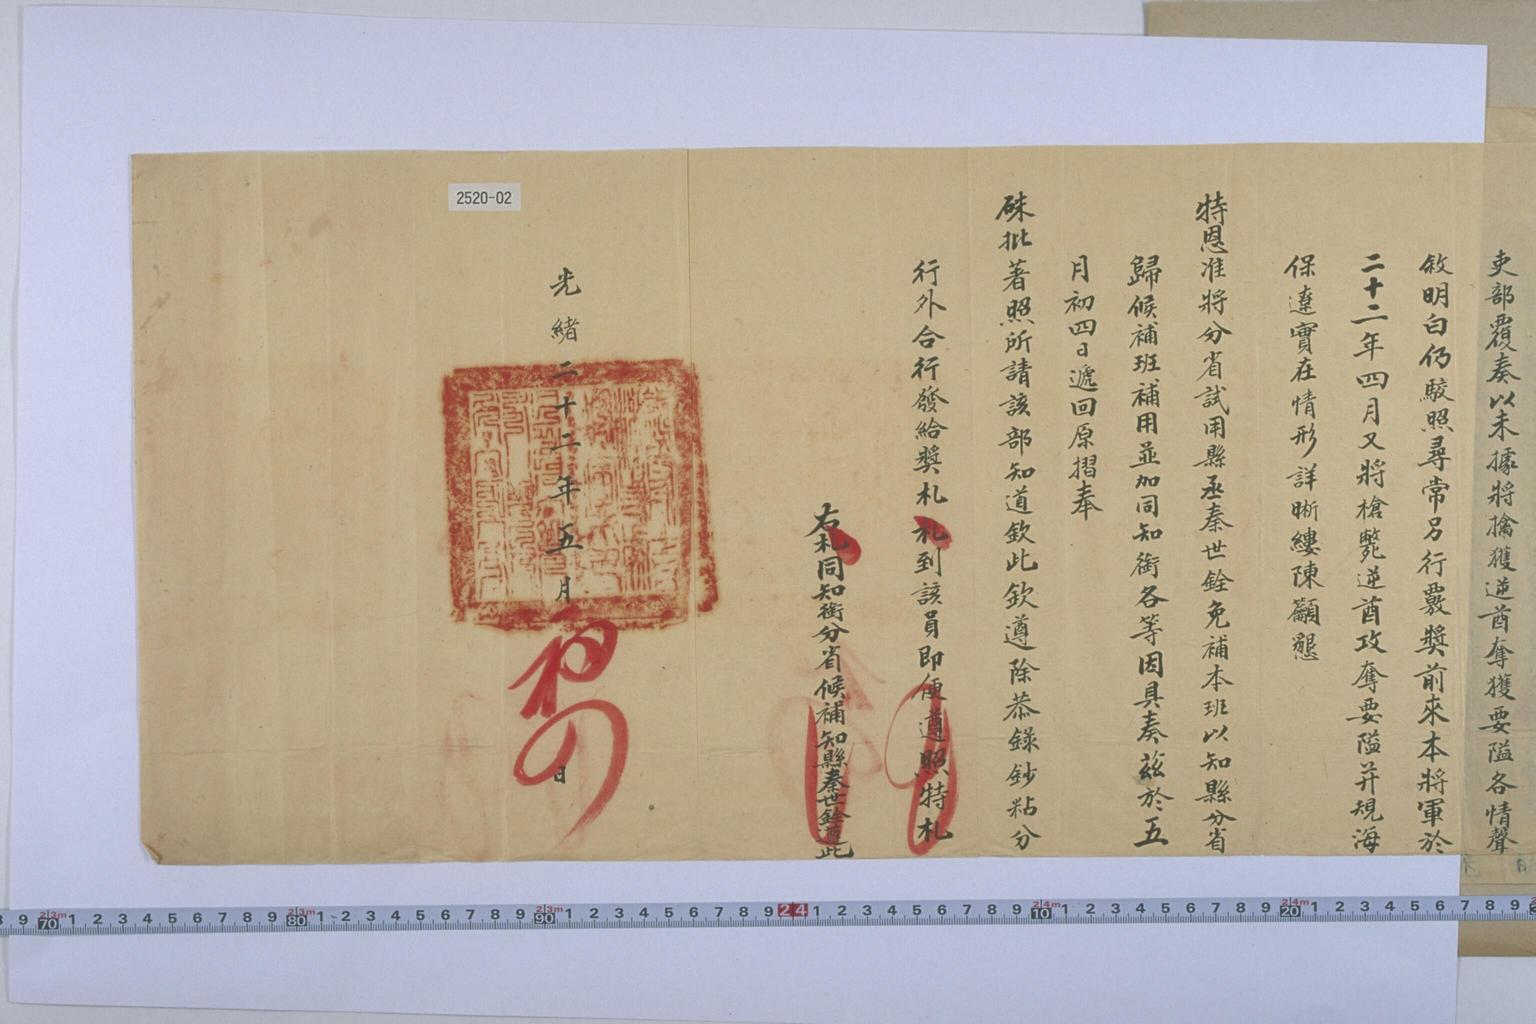 吏部覆奏以未據將擒獲逆酋奪獲要隘各情聲
敘明白仍較照尋常另行覈獎前來本將軍於
二十二年四月又將槍斃逆酋攻奪要隘并規海
保達實在情形詳晰縷陳籲懇
特恩准將分省試用縣丞秦世銓免補本班以知縣分省
歸候補班補用並加同知銜各等因具奏茲於五
月初四日遞回原摺奉
硃批著照所請該部知道欽此欽遵除恭錄鈔粘分
行外合行發給獎札札到該員即便遵照特札
右札同知銜分省候補知縣秦世銓遵此
光緒二十二年五月初四日
2520-02